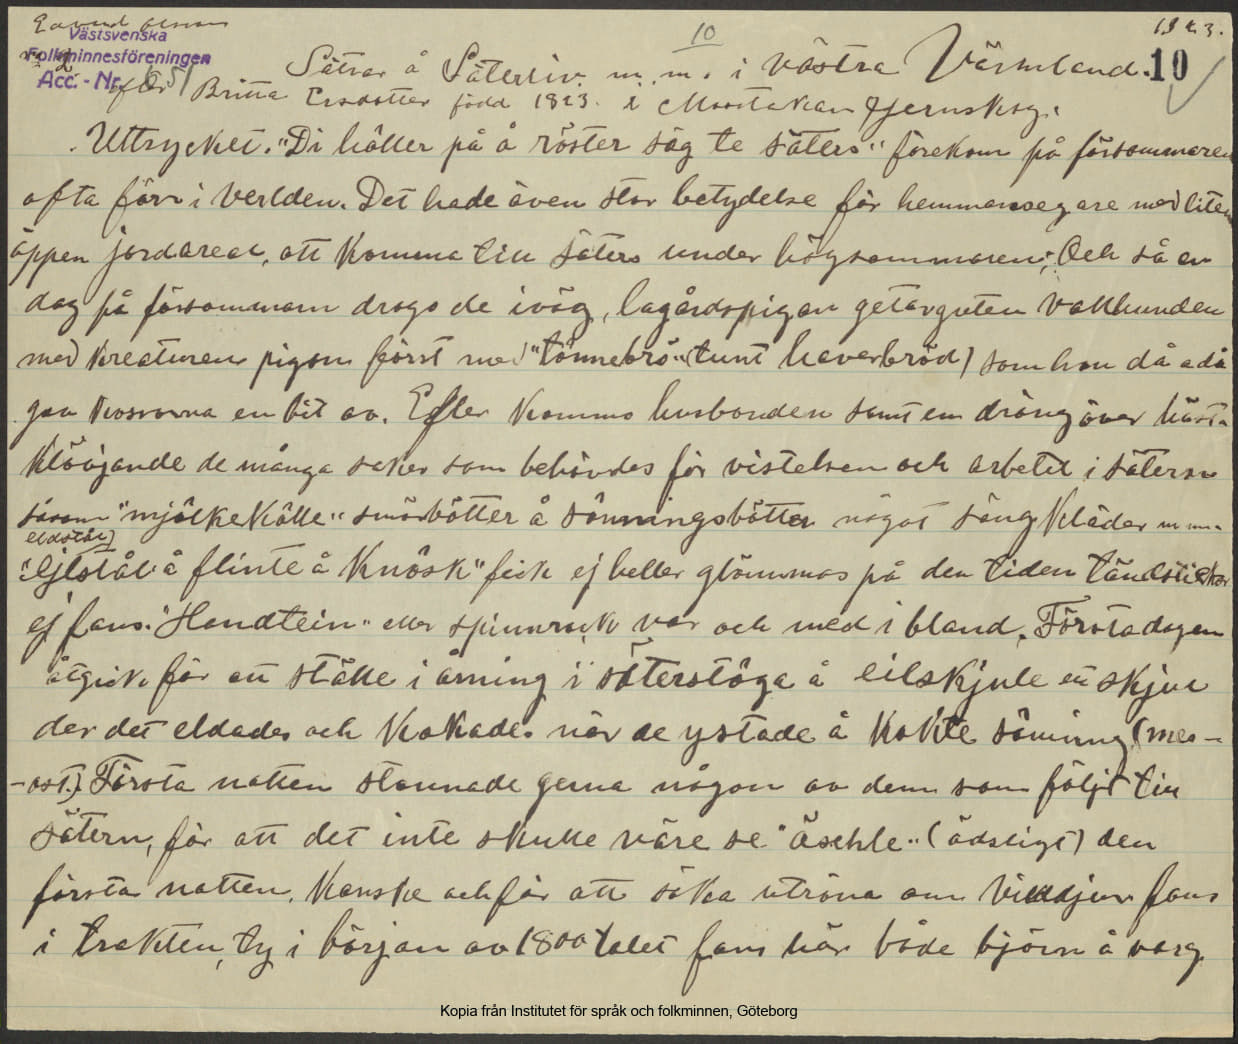 1923.
10
Västsvenska
Folkminnesföreningen
Acc. - Nr. 651
Sätrar å Säterliv m. m. i västra Värmland.
10
efter Britta Ersdotter född 1823. i Järnskog.
Uttrycket. "Di håller på å röster säg te säters" förekom på försommaren
ofta förr i verlden. Det hade även stor betydelse för hemmansegare med liten
öppen jordareal, att komma till säters under högsommaren; Och så en
dag på försommarn drogo de iväg, lagårdspigan getarguten vallhunden
med kreaturen pigan först med "tönnebrö" (tunt haverbröd) som hon då å då
gav kosvorna en bit av. Efter kommo husbonden samt en dräng över häst
klövjande de många saker som behövdes för vistelsen och arbetet i sätern
såsom "mjölkekölle" smörbötter å sönningsbötter något sängkläder m m.
eldstål)
"Ejlstål å flinte å knôsk" fick ej heller glömmas på den tiden tändstickor
ej fans. "Handtein" eller spinnrock var och med i bland. Första dagen
åtgick för att ställe i årning i säterstöga å eilskjule ett skjul
der det eldades och kokades när de ystade å kokte söming (mes-
-ost.) Första natten stannade gerna någon av dem som följt till
sätern, för att det inte skulle väre se "äsehle" (ödsligt) den
första natten. Kanske och för att söka utröna om villdjur fans
i trakten, ty i början av 1800 talet fans här både björn å varg
Kopia från Institutet för språk och folkminnen, Göteborg